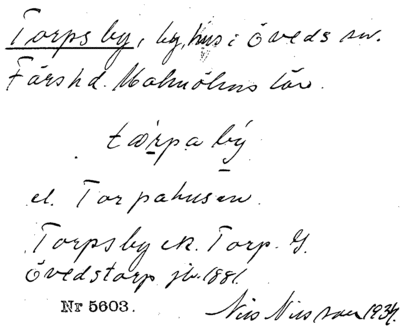 Torps by, by, hus i Öveds sn.
Färs hd. Malmöhus län.
tώrpa bý
el. Torpahusen.
Torpsby ek. Torp. G.
Övedstorp jb. 1881.
Nr 5603.
Nils Nilsson 1934.